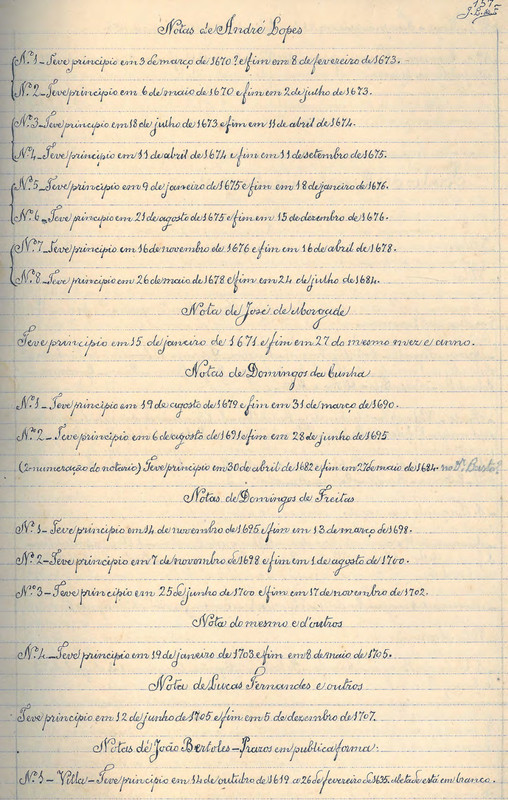 157
Notas de André Lopes
Nº1 - Teve principio em 3 de março de 1670? e fim em 8 de fevereiro de 1673.
Nº2 - Teve principio em 6 de maio de 1670 e fim em 2 de julho de 1673.
Nº3 - Teve principio em 18 de julho de 1673 e fim em 11 de abril de 1674.
Nº4 - Teve principio em 11 de abril de 1674 e fim em 11 de setembro de 1675.
Nº5 - Teve principio em 9 de janeiro de 1675 e fim em 18 de janeiro de 1676.
Nº6 - Teve principio em 21 de agosto de 1675 e fim em 15 de dezembro de 1676.
Nº7 - Teve principio em 16 de novembro de 1676 e fim em 16 de abril de 1678.
Nº8 - Teve principio em 26 de maio de 1678 e fim em 24 de julho de 1684.
Nota de José de Morgade
Teve principio em 15 de janeiro de 1671 e fim em 27 do mesmo mez e anno.
Notas de Domingos da Cunha
Nº1 - Teve principio em 19 de agosto de 1679 e fim em 31 de março de 1690.
Nº2 - Teve principio em 6 de agosto de 1691 e fim em 28 de junho de 1695
(2 numeração do notario) Teve principio em 30 de abril de 1682 e fim em 27 de maio de 1684
Notas de Domingos de Freitas
Nº1 - Teve principio em 14 de novembro de 1695 e fim em 13 de março de 1698.
Nº2 - Teve principio em 7 de novembro de 1698 e fim em 1 de agosto de 1700.
Nº3 - Teve principio em 25 de junho de 1700 e fim em 17 de novembro de 1702.
Nota do mesmo e d'outros
Nº4 - Teve principio em 19 de janeiro de 1703 e fim em 8 de maio de 1705.
Nota de Lucas Fernandes e outros
Teve principio em 12 de junho de 1705 e fim em 5 de dezembro de 1707.
Notas de João Bertoles - Prazos em publica forma:
Nº5 - Villa - Teve principio em 14 de outubro de 1619 a 26 de fevereiro de 1635. Metade está em branco.